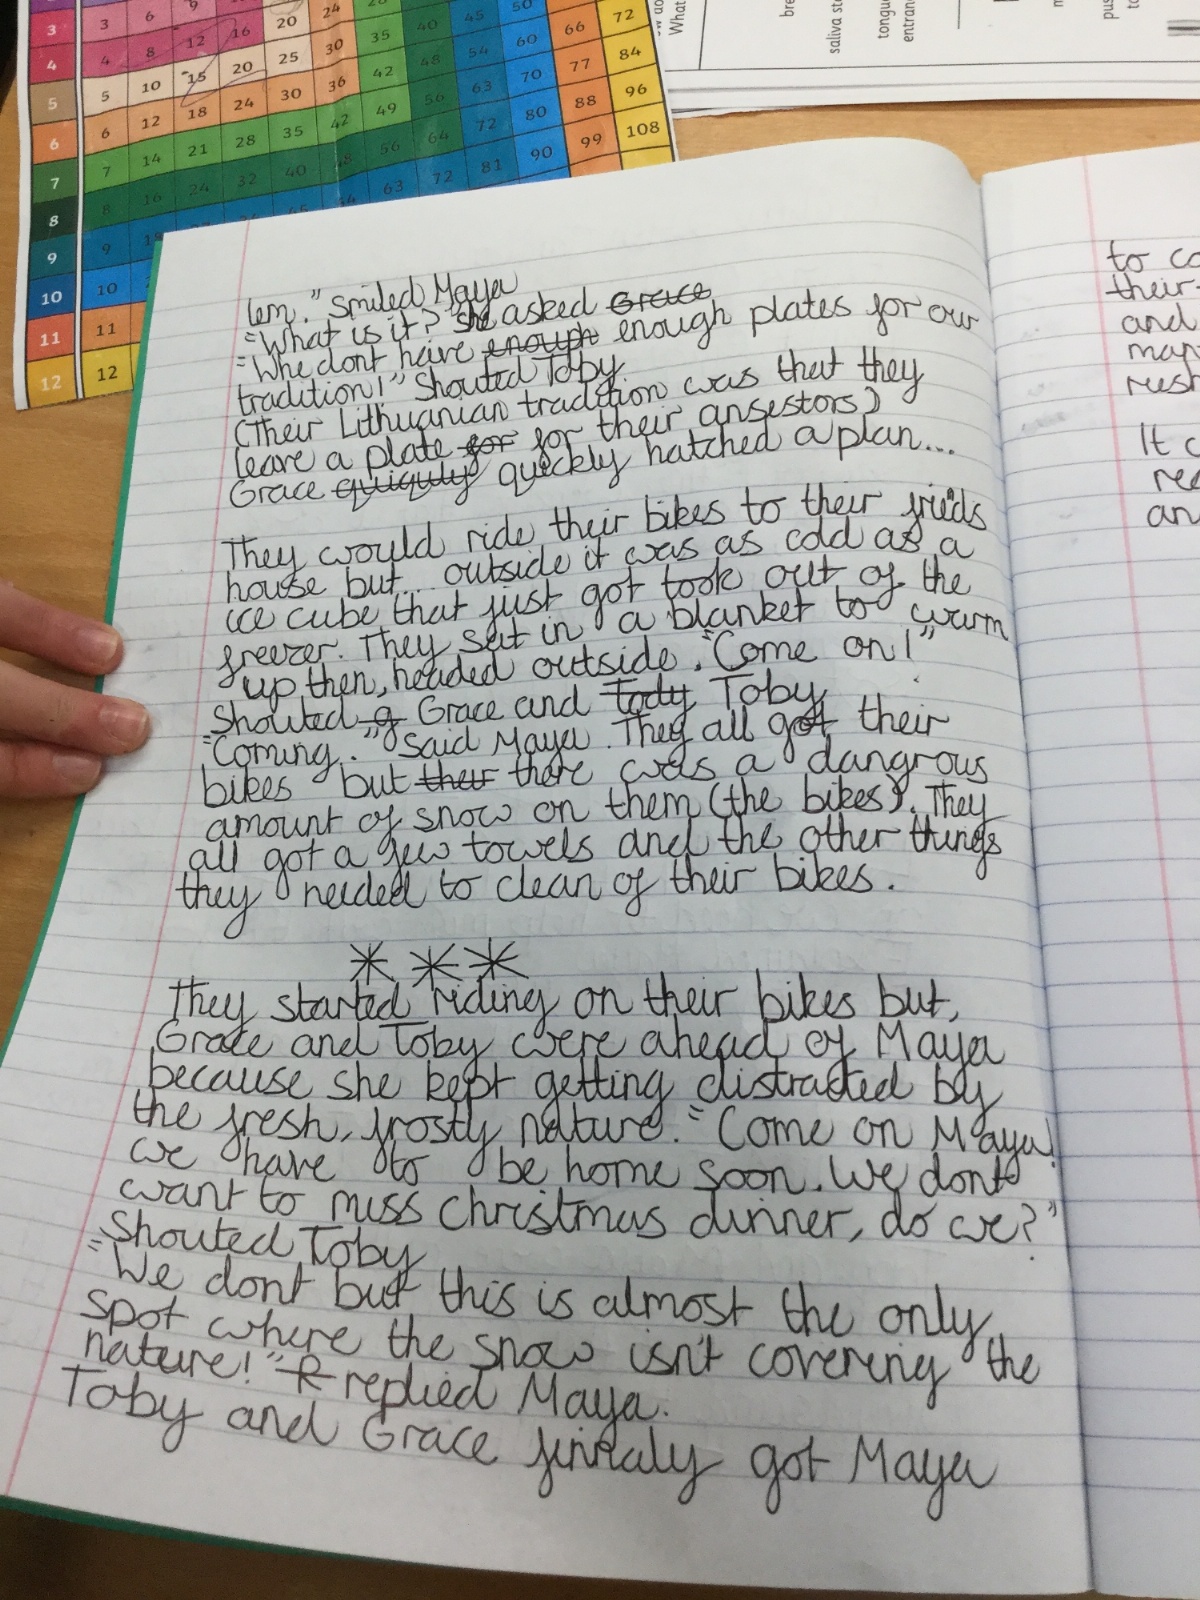 3 3 6 9 20 24 40 45 50 72
4 4 8 12 16 20 35 54 60 66 84
5 5 10 15 20 25 30 42 48 63 70 77 96
6 6 12 18 24 30 36 49 56 72 80 88 108
7 7 14 21 28 35 42 56 64 81 90 99
8 8 16 24 32 40 48 63 72
9 9
10 10
11 11
12 12
What
bre
saliva st
tongu
entran
pus
lem." Smiled Maya
"What is it?" She asked Grace
"Whe dont have enough enough plates for our
tradition!" Shouted Toby
(Their Lithuanian tradition was that they
leave a plate for for their ansestors)
Grace quiquly quickly hatched a plan...
They would ride their bikes to their frieds
house but... outside it was as cold as a
ice cube that just got took out of the
freezer. They sat in a blanket to warm
up then, headed outside. "Come on!"
Shouted g Grace and Tody Toby
"Coming." Said Maya. They all got their
bikes but their there was a dangrous
amount of snow on them (the bikes). They
all got a few towels and the other things
they needed to clean of their bikes.
***
They started riding on their bikes but,
Grace and Toby were ahead of Maya
because she kept getting distracted by
the fresh, frosty nature. "Come on Maya!
we have to be home soon. We dont
want to miss christmas dinner, do we?"
Shouted Toby
"We dont but this is almost the only
spot where the snow isn't covering the
nature!" R replied Maya.
Toby and Grace finnaly got Maya
to co
their
and
map
resh
It c
rea
an